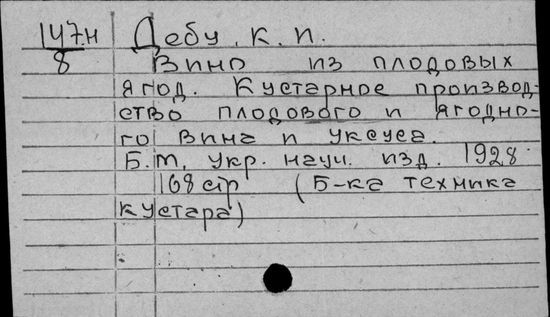 147н Дебу, К. И.
8 Вино из плодовых
ягод. Кустарное производ-
ство плодового и ягодно-
го вина и уксуса.
Б.м, укр. науч. изд. 1928
168 стр (Б-ка техника
кустара)